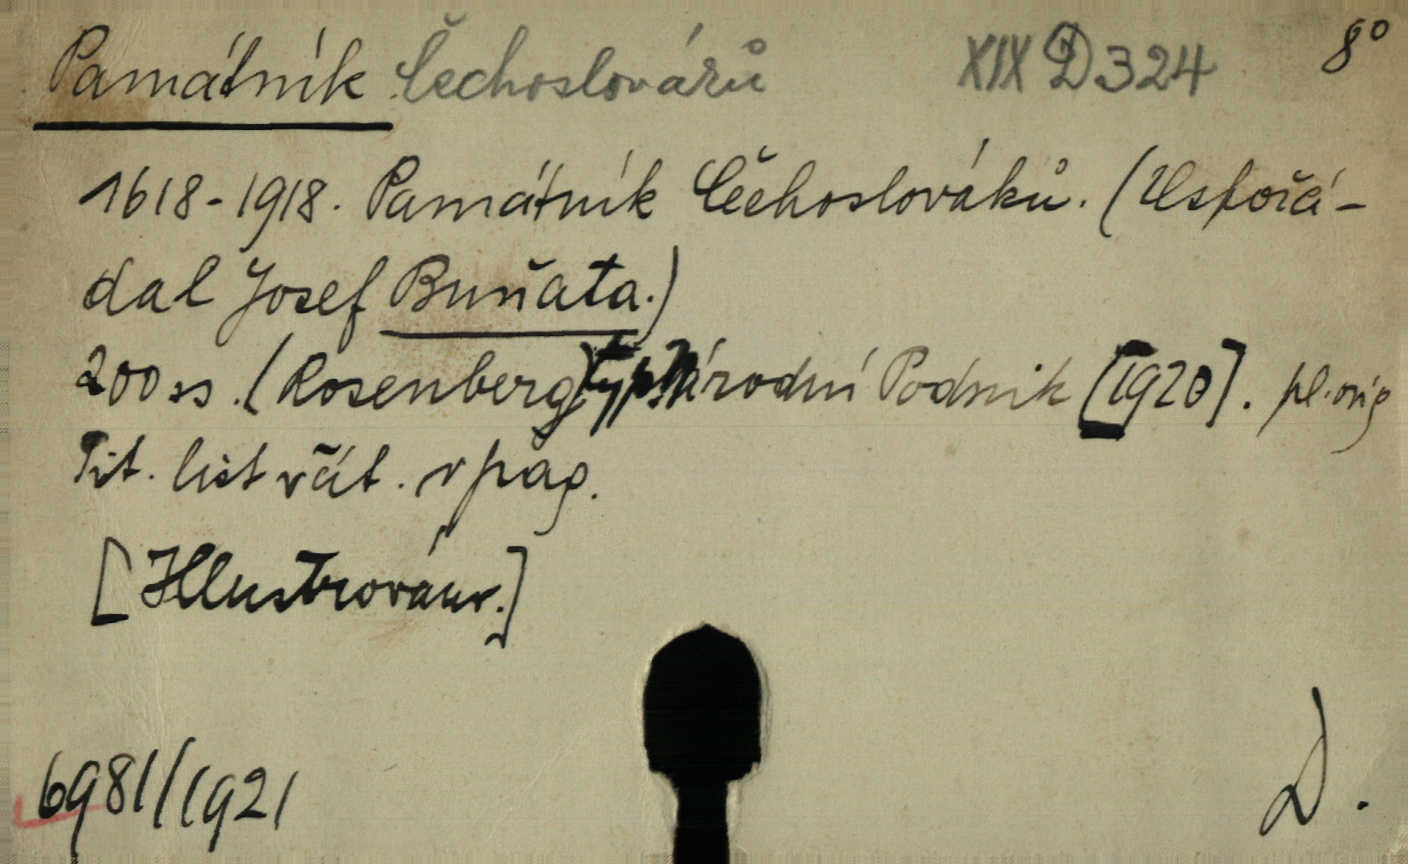 Památník Čechoslováků XIX D 324 8°
1618-1918. Památník Čechoslováků. (Uspořá-
dal Josef Buňata.)
200 ss. (Rosenberg) typ. Národní Podnik [1920]. pl. orig
Tit. list včít. v pag.
[Illustrováno.]
6981/1921
D.